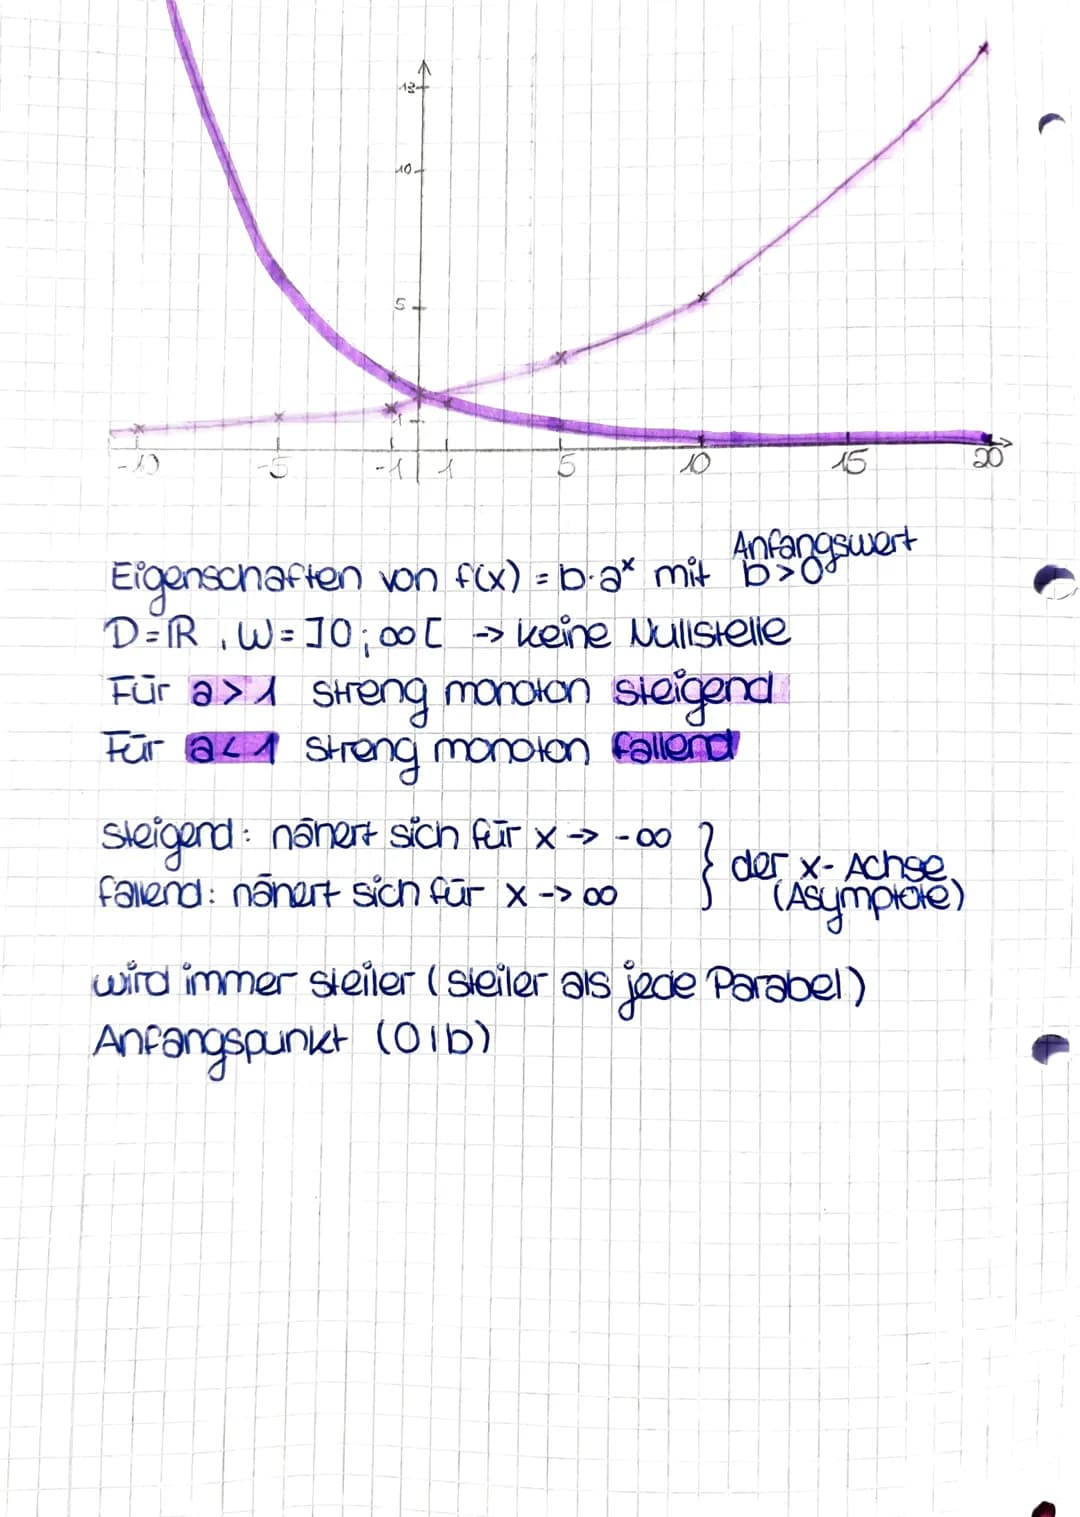 13
10
5
1
-10 -5 -1 1 5 10 15 20
Anfangswert
Eigenschaften von f(x) = b·aˣ mit b>0
D=ℝ , W= ]0;∞[ -> keine Nullstelle
Für a>1 streng monoton steigend
Für a<1 streng monoton fallend
steigend: nähert sich für x -> -∞
fallend: nähert sich für x -> ∞
} der x-Achse
(Asymptote)
wird immer steiler (steiler als jede Parabel)
Anfangspunkt (0|b)